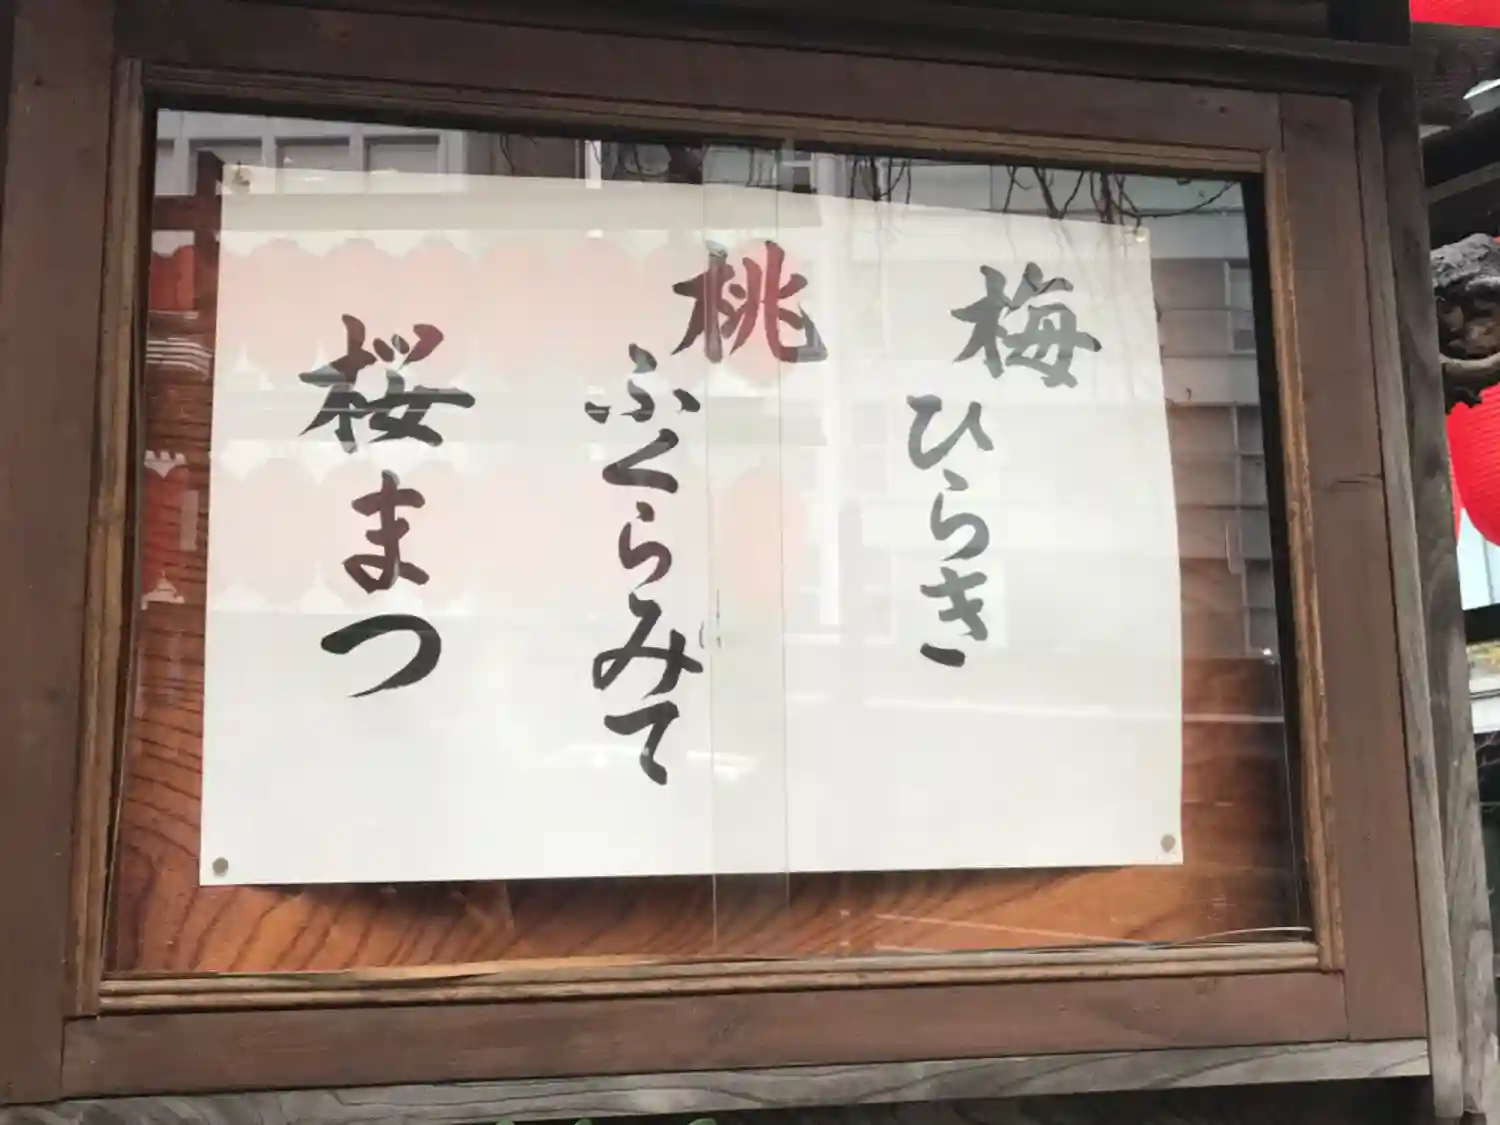 梅
ひらき
桃
ふくらみて
桜まつ